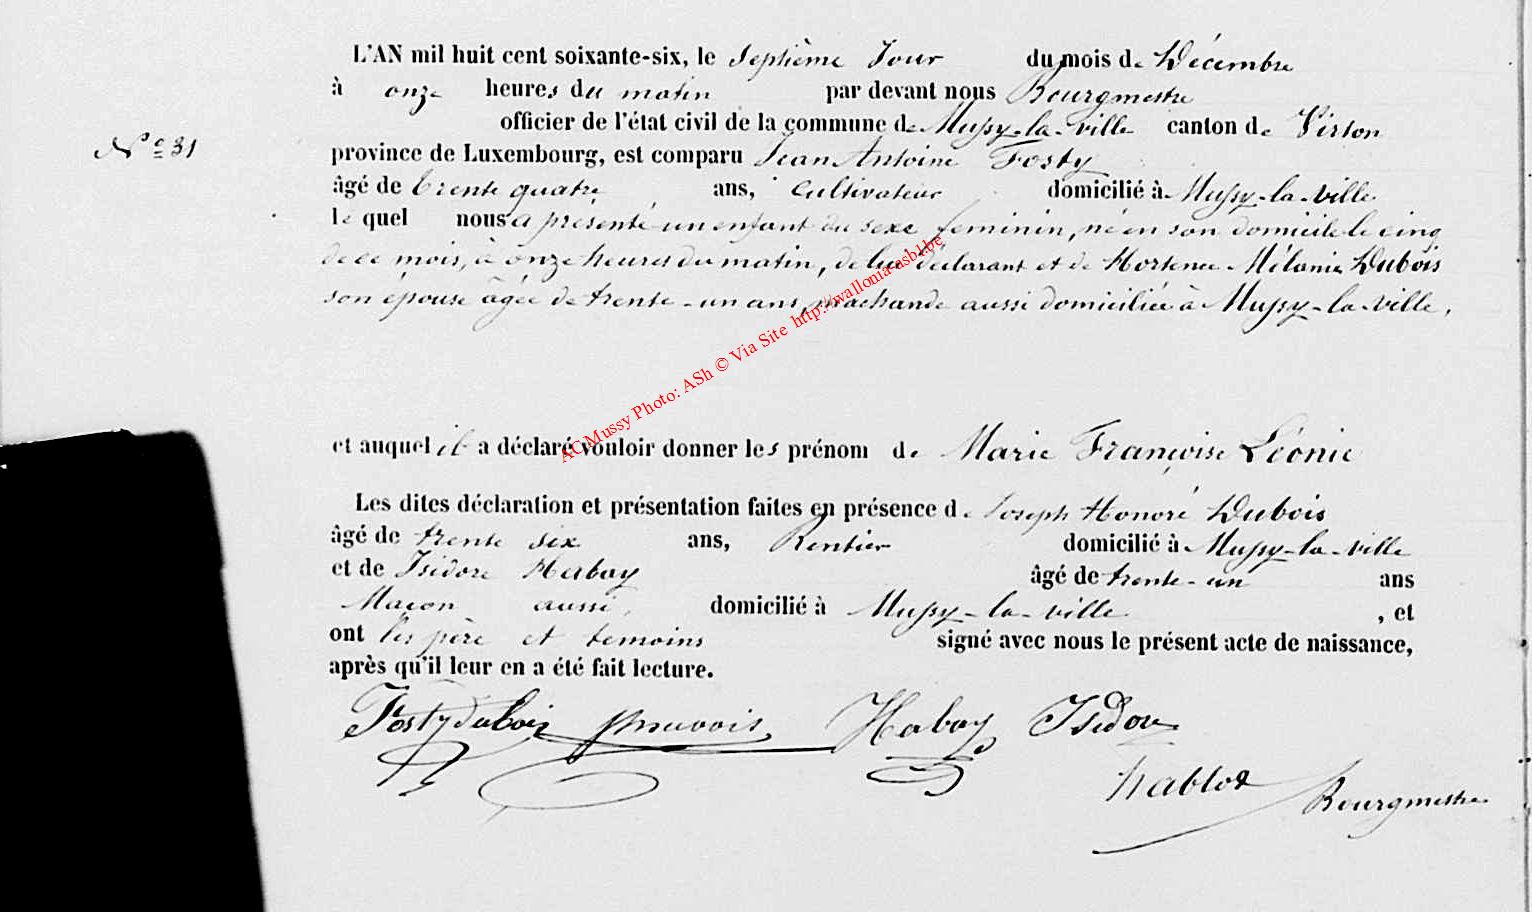 L'AN mil huit cent soixante-six, le Septième Jour du mois de Décembre
à onze heures du matin par devant nous Bourgmestre
officier de l'état civil de la commune de Mussy-la-ville canton de Virton
N° 31
province de Luxembourg, est comparu Jean Antoine Fosty
âgé de trente quatre ans, Cultivateur domicilié à Mussy-la-ville
le quel nous a présenté un enfant du sexe feminin, né en son domicile le cinq
de ce mois, à onze heures du matin, de lui déclarant et de Hortence Mélanie Dubois
son épouse âgée de trente-un ans, marchande aussi domiciliée à Mussy-la-ville,
AC Mussy Photo: ASh © Via Site http://wallonia-asbl.be
et auquel il a déclaré vouloir donner les prénom de Marie Françoise Léonie
Les dites déclaration et présentation faites en présence de Joseph Honoré Dubois
âgé de trente six ans, Rentier domicilié à Mussy-la-ville
et de Isidore Habay âgé de trente-un ans
Maçon aussi domicilié à Mussy-la-ville, et
ont les père et temoins signé avec nous le présent acte de naissance,
après qu'il leur en a été fait lecture.
Fosty dubois Habay Isidore
Bourgmestre